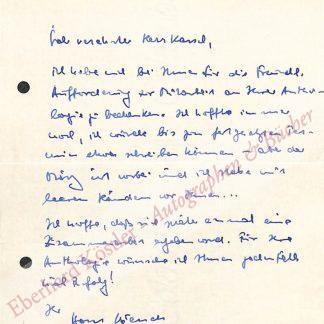 Sehr verehrter Herr Kassel,
ich habe mich bei Ihnen für die freundl.
Aufforderung zur Mitarbeit an Ihrer Antho-
logie zu bedanken. Ich hoffte immer
noch, ich würde bis zum festgesetzten Ter-
min etwas schreiben können – aber der
März ist vorbei und ich stehe mit
leeren Händen vor Ihnen...
Ich hoffe, daß sich später einmal eine
Zusammenarbeit ergeben wird. Für Ihre
Anthologie wünsche ich Ihnen jedenfalls
viel Erfolg!
Ihr
Hans
Eberhard Köstler Autographen & Bücher